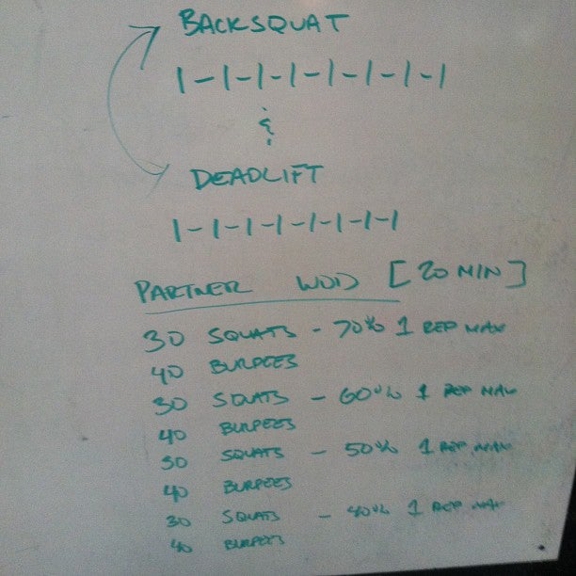 BACKSQUAT
1-1-1-1-1-1-1-1
&
DEADLIFT
1-1-1-1-1-1-1-1
PARTNER WOD [20 MIN]
30 SQUATS - 70% 1 REP MAX
40 BURPEES
30 SQUATS - 60% 1 REP MAX
40 BURPEES
30 SQUATS - 50% 1 REP MAX
40 BURPEES
30 SQUATS - 40% 1 REP MAX
40 BURPEES